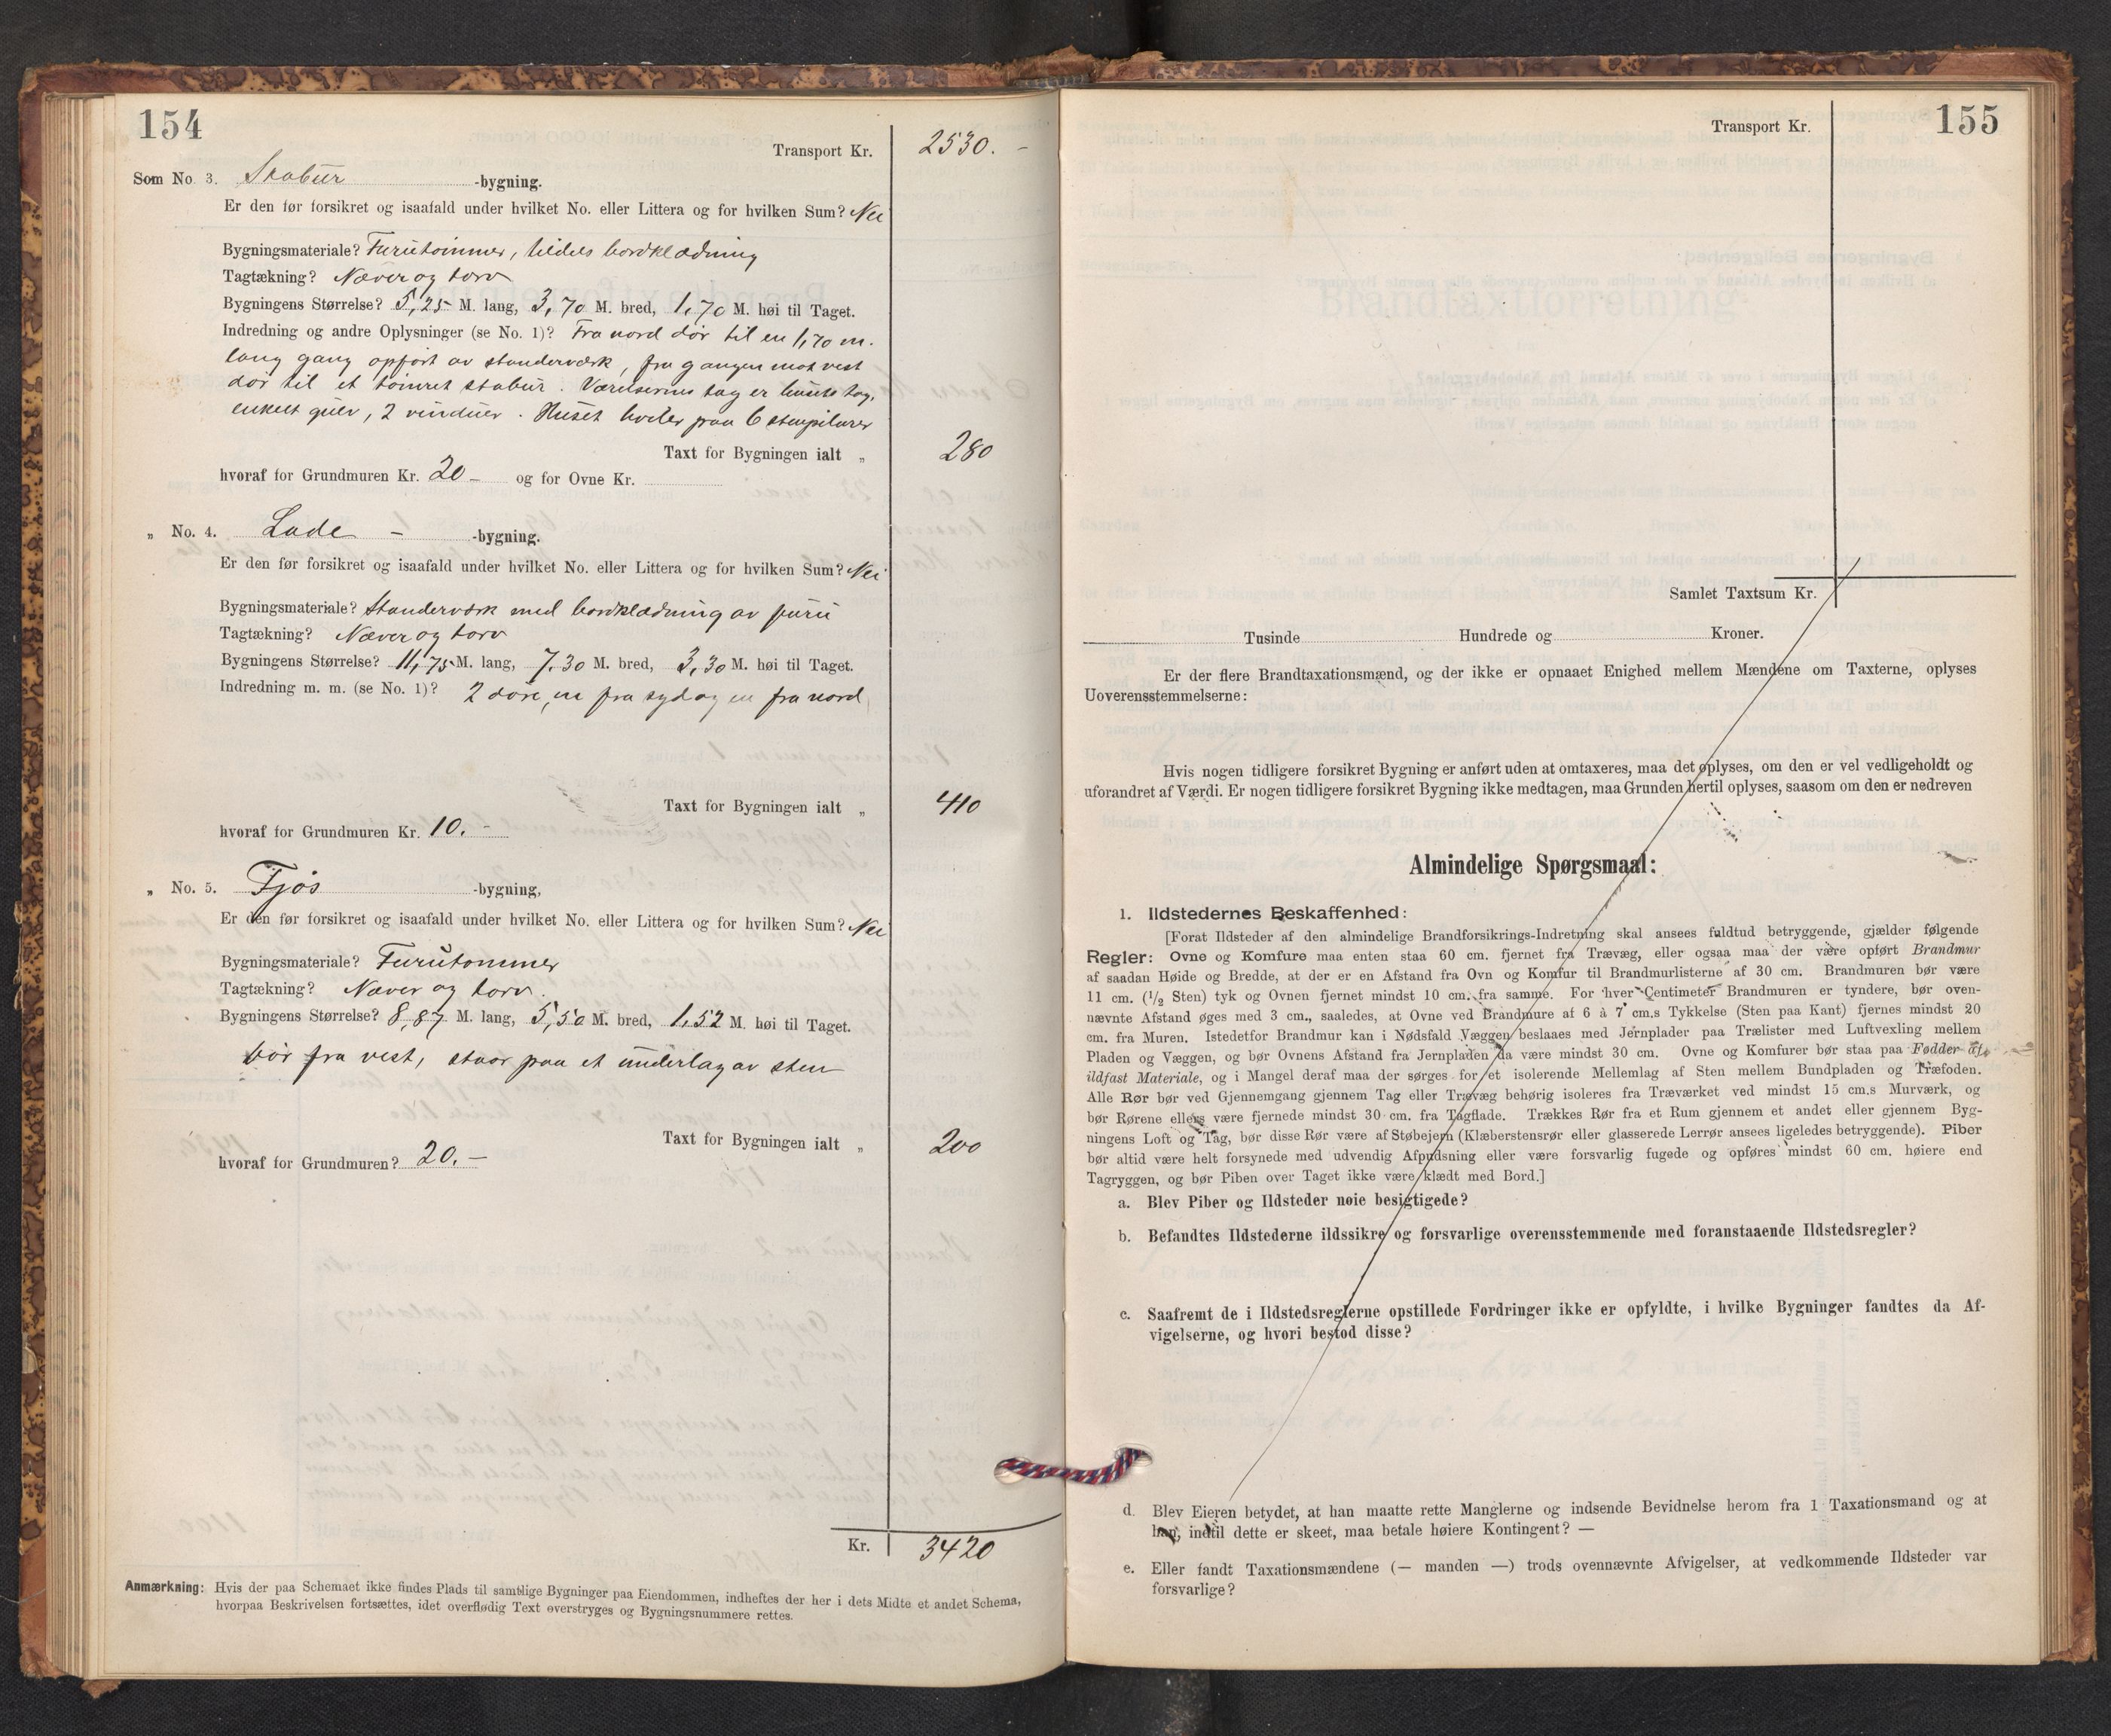 154
Transport Kr. 2530. -
Som No. 3. Stabur -bygning.
Er den før forsikret og isaafald under hvilket No. eller Littera og for hvilken Sum? Nei
Bygningsmateriale? Furutømmer, tildels bordklædning
Tagtækning? Næver og torv
Bygningens Størrelse? 5,25 M. lang, 3,70 M. bred, 1,70 M. høi til Taget.
Indredning og andre Oplysninger (se No. 1)? Fra nord dør til en 1,70 m.
lang gang opført av stenderværk, fra gangen mot vest
dør til et tømret stabur. Værelsernes tag er husets tag,
enkelt gulv, 2 vinduer. Huset hviler paa 6 stenpilarer
Taxt for Bygningen ialt „ 280
hvoraf for Grundmuren Kr. 20 – og for Ovne Kr.
„ No. 4. Lade – -bygning.
Er den før forsikret og isaafald under hvilket No. eller Littera og for hvilken Sum? Nei
Bygningsmateriale? Stenderværk med bordklædning av furu
Tagtækning? Næver og torv
Bygningens Størrelse? 11,75 M. lang, 7,30 M. bred, 3,30 M. høi til Taget.
Indredning m. m. (se No. 1)? 2 døre, en fra syd og en fra nord
Taxt for Bygningen ialt „ 410
hvoraf for Grundmuren Kr. 10. -
„ No. 5. Fjøs -bygning,
Er den før forsikret og isaafald under hvilket No. eller Littera og for hvilken Sum? Nei
Bygningsmateriale? Furutømmer
Tagtækning? Næver og torv.
Bygningens Størrelse? 8,87 M. lang, 5,50 M. bred, 1,52 M. høi til Taget.
Dør fra vest, staar paa et underlag av sten
Taxt for Bygningen ialt „ 200
hvoraf for Grundmuren? 20. –
Kr. 3420
Anmærkning: Hvis der paa Schemaet ikke findes Plads til samtlige Bygninger paa Eiendommen, indheftes der her i dets Midte et andet Schema,
hvorpaa Beskrivelsen fortsættes, idet overflødig Text overstryges og Bygningsnummere rettes.
155
Transport Kr.
Samlet Taxtsum Kr.
Tusinde Hundrede og Kroner.
Er der flere Brandtaxationsmænd, og der ikke er opnaaet Enighed mellem Mændene om Taxterne, oplyses
Uoverensstemmelserne:
Hvis nogen tidligere forsikret Bygning er anført uden at omtaxeres, maa det oplyses, om den er vel vedligeholdt og
uforandret af Værdi. Er nogen tidligere forsikret Bygning ikke medtagen, maa Grunden hertil oplyses, saasom om den er nedreven
Almindelige Spørgsmaal:
1. Ildstedernes Beskaffenhed:
[Forat Ildsteder af den almindelige Brandforsikrings-Indretning skal ansees fuldtud betryggende, gjælder følgende
Regler: Ovne og Komfure maa enten staa 60 cm. fjernet fra Trævæg, eller ogsaa maa der være opført Brandmur
af saadan Høide og Bredde, at der er en Afstand fra Ovn og Komfur til Brandmurlisterne af 30 cm. Brandmuren bør være
11 cm. (1/2 Sten) tyk og Ovnen fjernet mindst 10 cm. fra samme. For hver Centimeter Brandmuren er tyndere, bør oven-
nævnte Afstand øges med 3 cm., saaledes, at Ovne ved Brandmure af 6 à 7 cm.s Tykkelse (Sten paa Kant) fjernes mindst 20
cm. fra Muren. Istedetfor Brandmur kan i Nødsfald Væggen beslaaes med Jernplader paa Trælister med Luftvexling mellem
Pladen og Væggen, og bør Ovnens Afstand fra Jernpladen da være mindst 30 cm. Ovne og Komfurer bør staa paa Fødder af
ildfast Materiale, og i Mangel deraf maa der sørges for et isolerende Mellemlag af Sten mellem Bundpladen og Træfoden.
Alle Rør bør ved Gjennemgang gjennem Tag eller Trævæg behørig isoleres fra Træværket ved mindst 15 cm.s Murværk, og
bør Rørene ellers være fjernede mindst 30 cm. fra Tagflade. Trækkes Rør fra et Rum gjennem et andet eller gjennem Byg-
ningens Loft og Tag, bør disse Rør være af Støbejern (Klæberstensrør eller glasserede Lerrør ansees ligeledes betryggende). Piber
bør altid være helt forsynede med udvendig Afpudsning eller være forsvarlig fugede og opføres mindst 60 cm. høiere end
Tagryggen, og bør Piben over Taget ikke være klædt med Bord.]
a. Blev Piber og Ildsteder nøie besigtigede?
b. Befandtes Ildstederne ildssikre og forsvarlige overensstemmende med foranstaaende Ildstedsregler?
c. Saafremt de i Ildstedsreglerne opstillede Fordringer ikke er opfyldte, i hvilke Bygninger fandtes da Af-
vigelserne, og hvori bestod disse?
d. Blev Eieren betydet, at han maatte rette Manglerne og indsende Bevidnelse herom fra 1 Taxationsmand og at
han, indtil dette er skeet, maa betale høiere Kontingent? —
e. Eller fandt Taxationsmændene (— manden —) trods ovennævnte Afvigelser, at vedkommende Ildsteder var
forsvarlige?